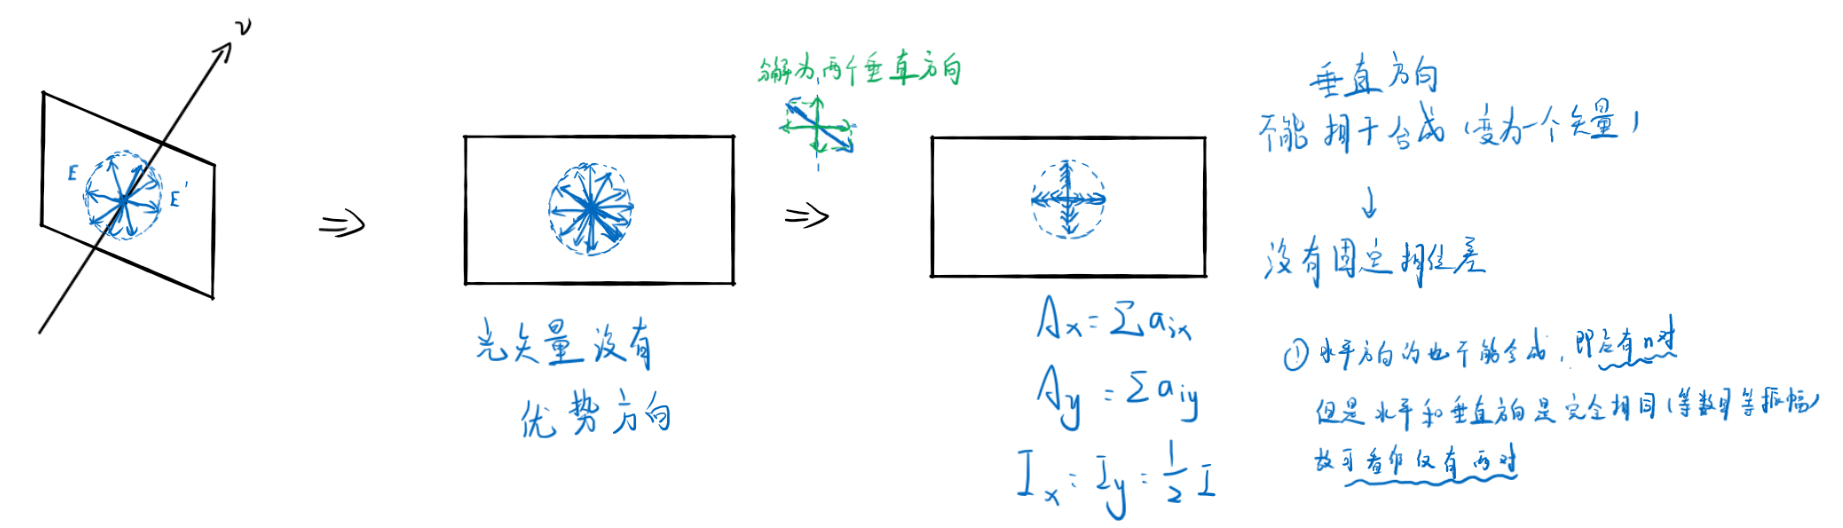 ν
E
E'
光矢量没有
优势方向
分解为两个垂直方向
A_x = Σ a_ix
A_y = Σ a_iy
I_x = I_y = 1/2 I
垂直方向
不能相干合成（变为一个矢量）
↓
没有固定相位差
① 水平方向的也不能合成，即会有n对
但是水平和垂直方向是完全相同（等数目等振幅）
故可看作仅有两对